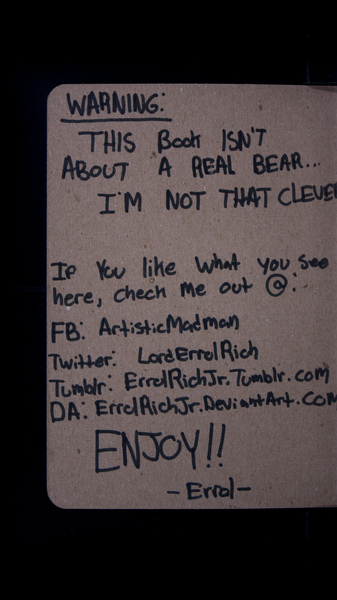 WARNING:
THIS Book ISN'T
ABOUT A REAL BEAR...
I'M NOT THAT CLEVE
If You like What you see
here, check Me out @:
FB: ArtisticMadman
Twitter: LordErrolRich
Tumblr: ErrolRichJr.Tumblr.com
DA: ErrolRichJr.DeviantArt.Com
ENJOY!!
-Errol-